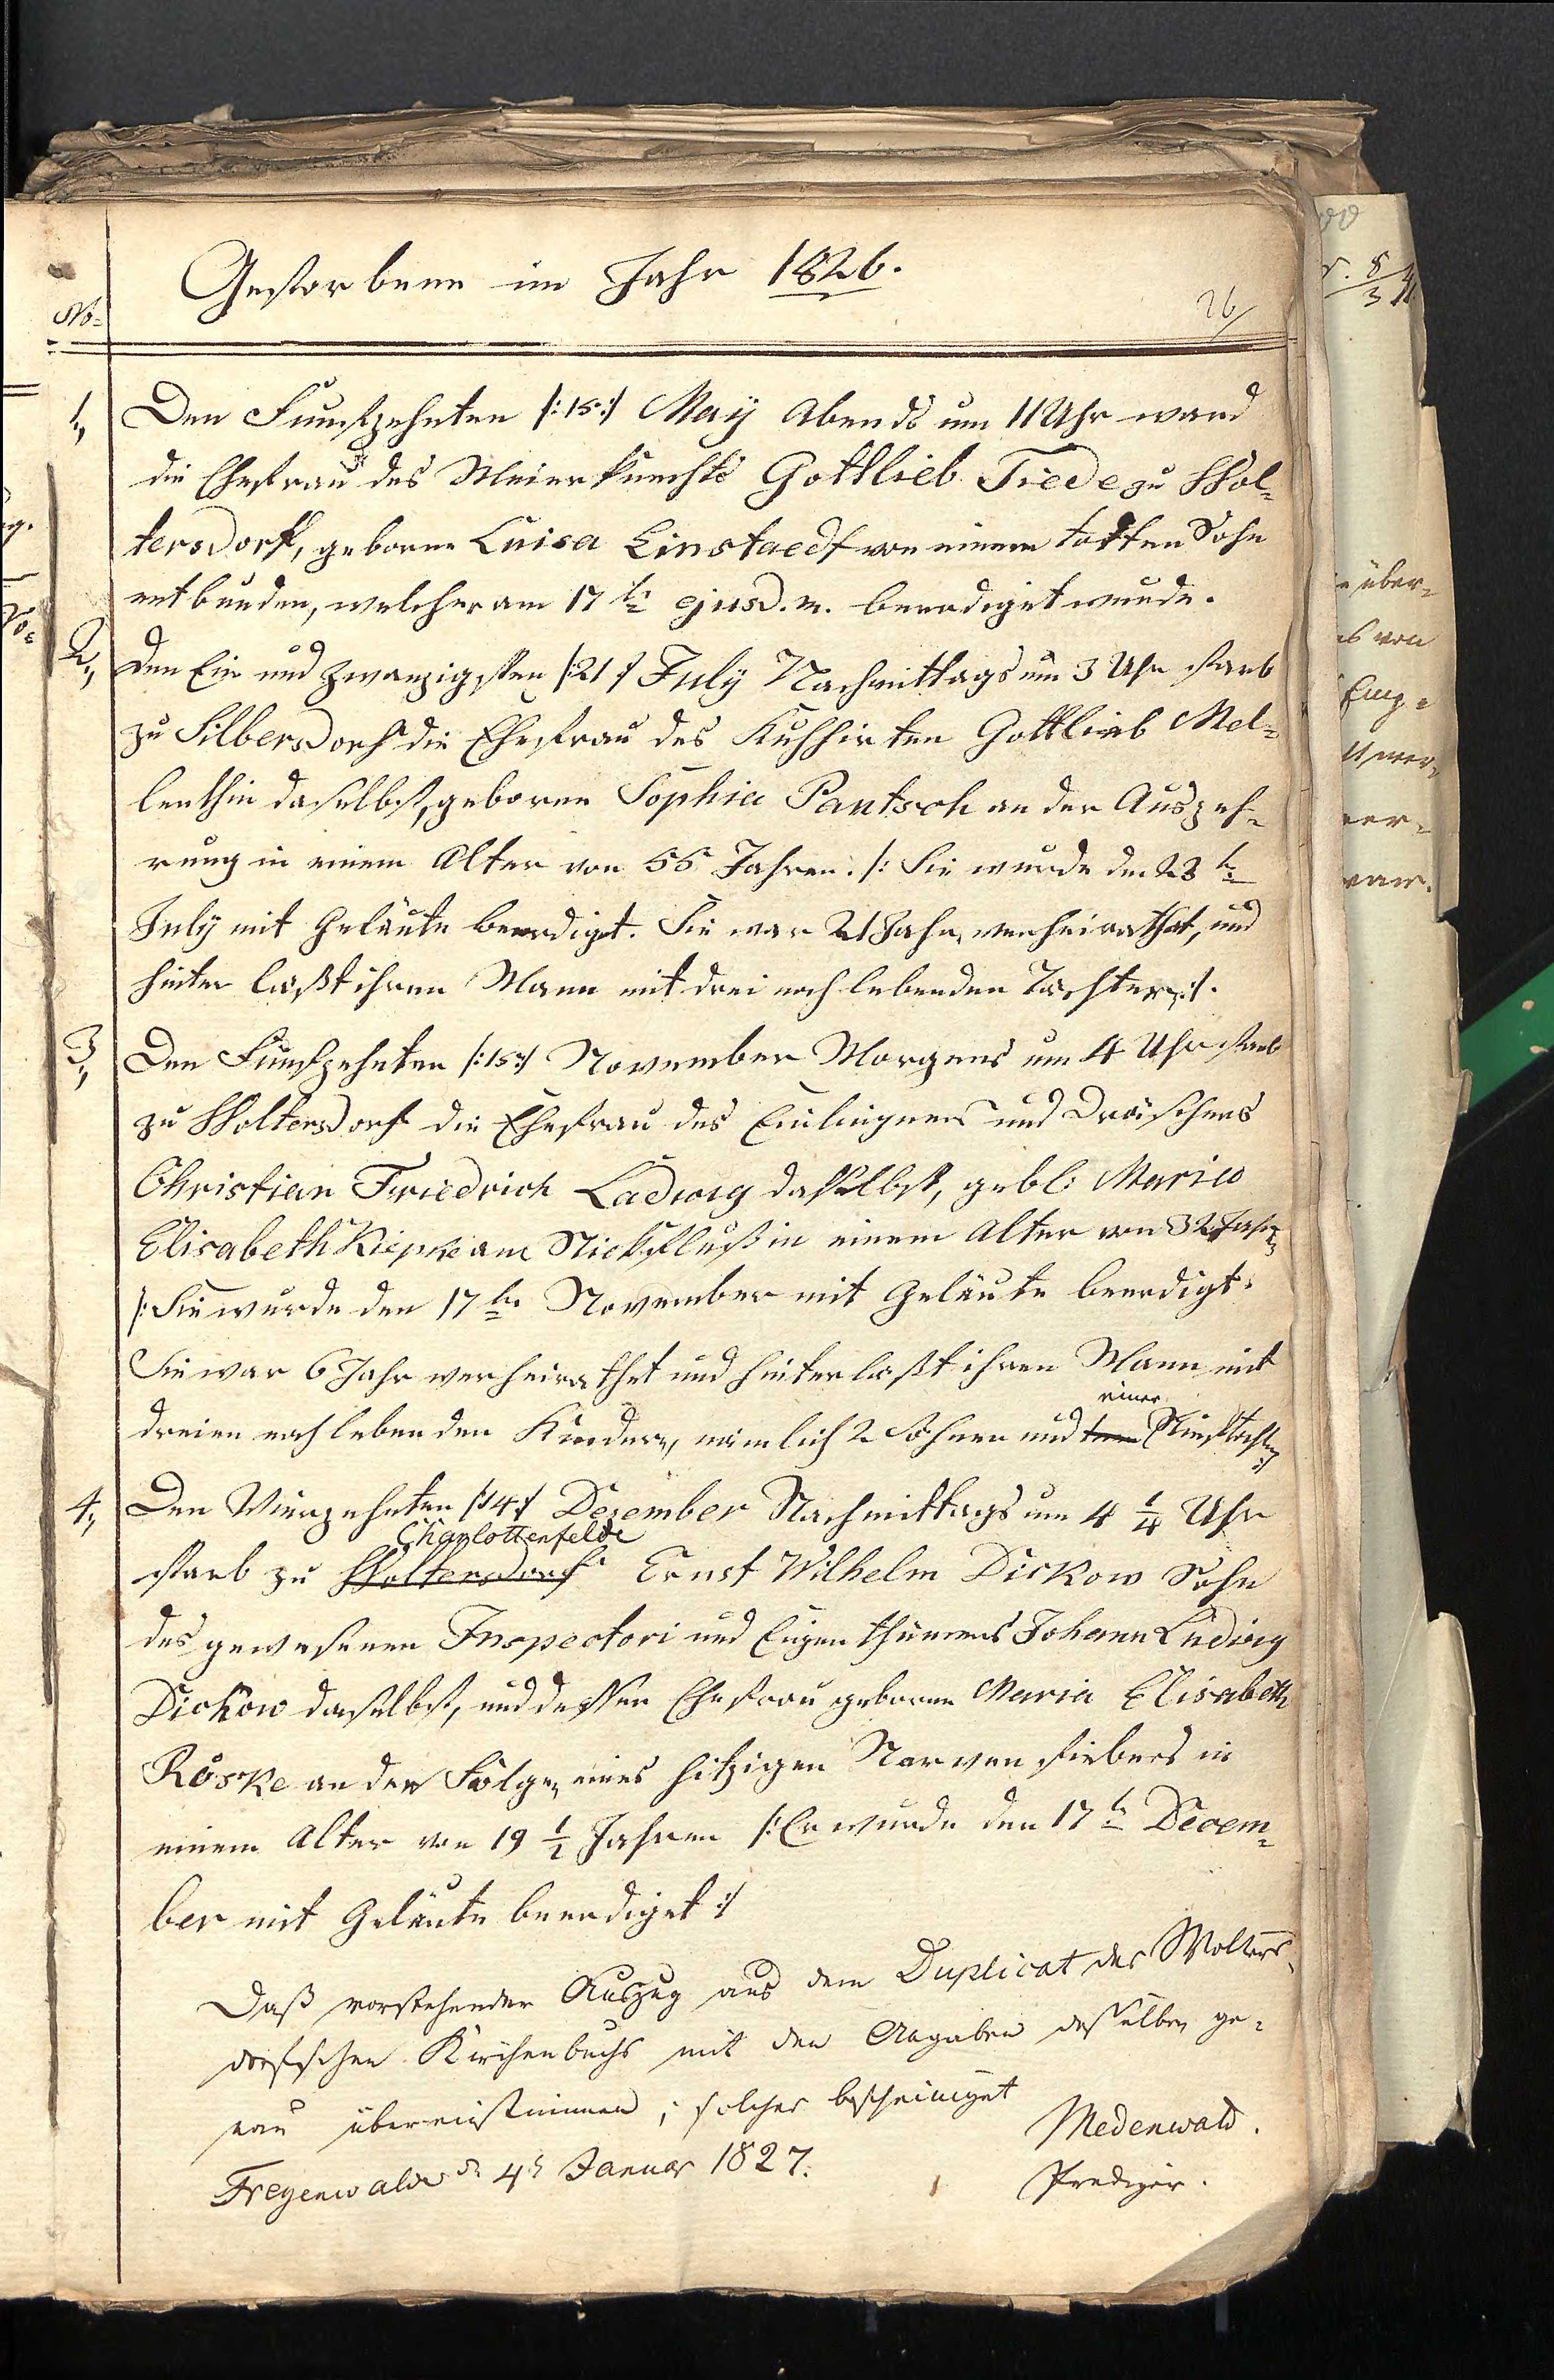 Gestorbene im Jahr 1826.
No.
26/
1., Den Funfzehnten /:15:/ May Abends um 11 Uhr ward
die Ehefrau des Meierknechts Gottlieb Tiede zu Wol-
tersdorf, geborne Luisa Linstaedt von einem todten Sohn
entbunden, welcher am 17 t. ejusd. m. beerdiget wurde.
2., Den Ein und zwanzigsten /:21:/ July Nachmittags um 3 Uhr starb
zu Silbersdorf die Ehefrau des Kuhhirten Gottlieb Mel-
lenthin daselbst, geborne Sophia Pantsch an der Auszeh-
rung in einem Alter von 55 Jahren. /: Sie wurde den 23 t.
July mit Geläute beerdiget. Sie war 21 Jahr verheirathet, und
hinter läßt ihren Mann mit drei noch lebenden Töchtern :/.
3., Den Funfzehnten /:15:/ November Morgens um 4 Uhr starb
zu Woltersdorf die Ehefrau des Einliegers und Dräschers
Christian Friedrich Ladwig daselbst, geb. Maria
Elisabeth Kiepke am Stickfluß in einem Alter von 32 Jahr.
/: Sie wurde den 17 t. November mit Geläute beerdigt.
Sie war 6 Jahr verheirathet und hinterläßt ihren Mann mit
einer
dreien noch lebenden Kindern, nämlich 2 Söhnen und Stieftochter :/
4., Den Vierzehnten /:14:/ Dezember Nachmittags um 4 1/4 Uhr
Charlottenfelde
starb zu Woltersdorf Ernst Wilhelm Dickow Sohn
des gewesenen Inspectori und Eigenthümers Johann Ludwig
Dickow daselbst, und dessen Ehefrau geborne Maria Elisabeth
Röske an den Folgen eines hitzigen Nervenfiebers in
einem Alter von 19 1/2 Jahren /: Er wurde den 17 t. Decem-
ber mit Geläute beerdiget :/
Daß vorstehender Auszug aus dem Duplicat des Wolters-
dorfschen Kirchenbuchs mit den Angaben desselben ge-
nau übereinstimmend, solches bescheiniget
Medenwald.
Freyenwalde d 4t Januar 1827.
Prediger.
über-
von